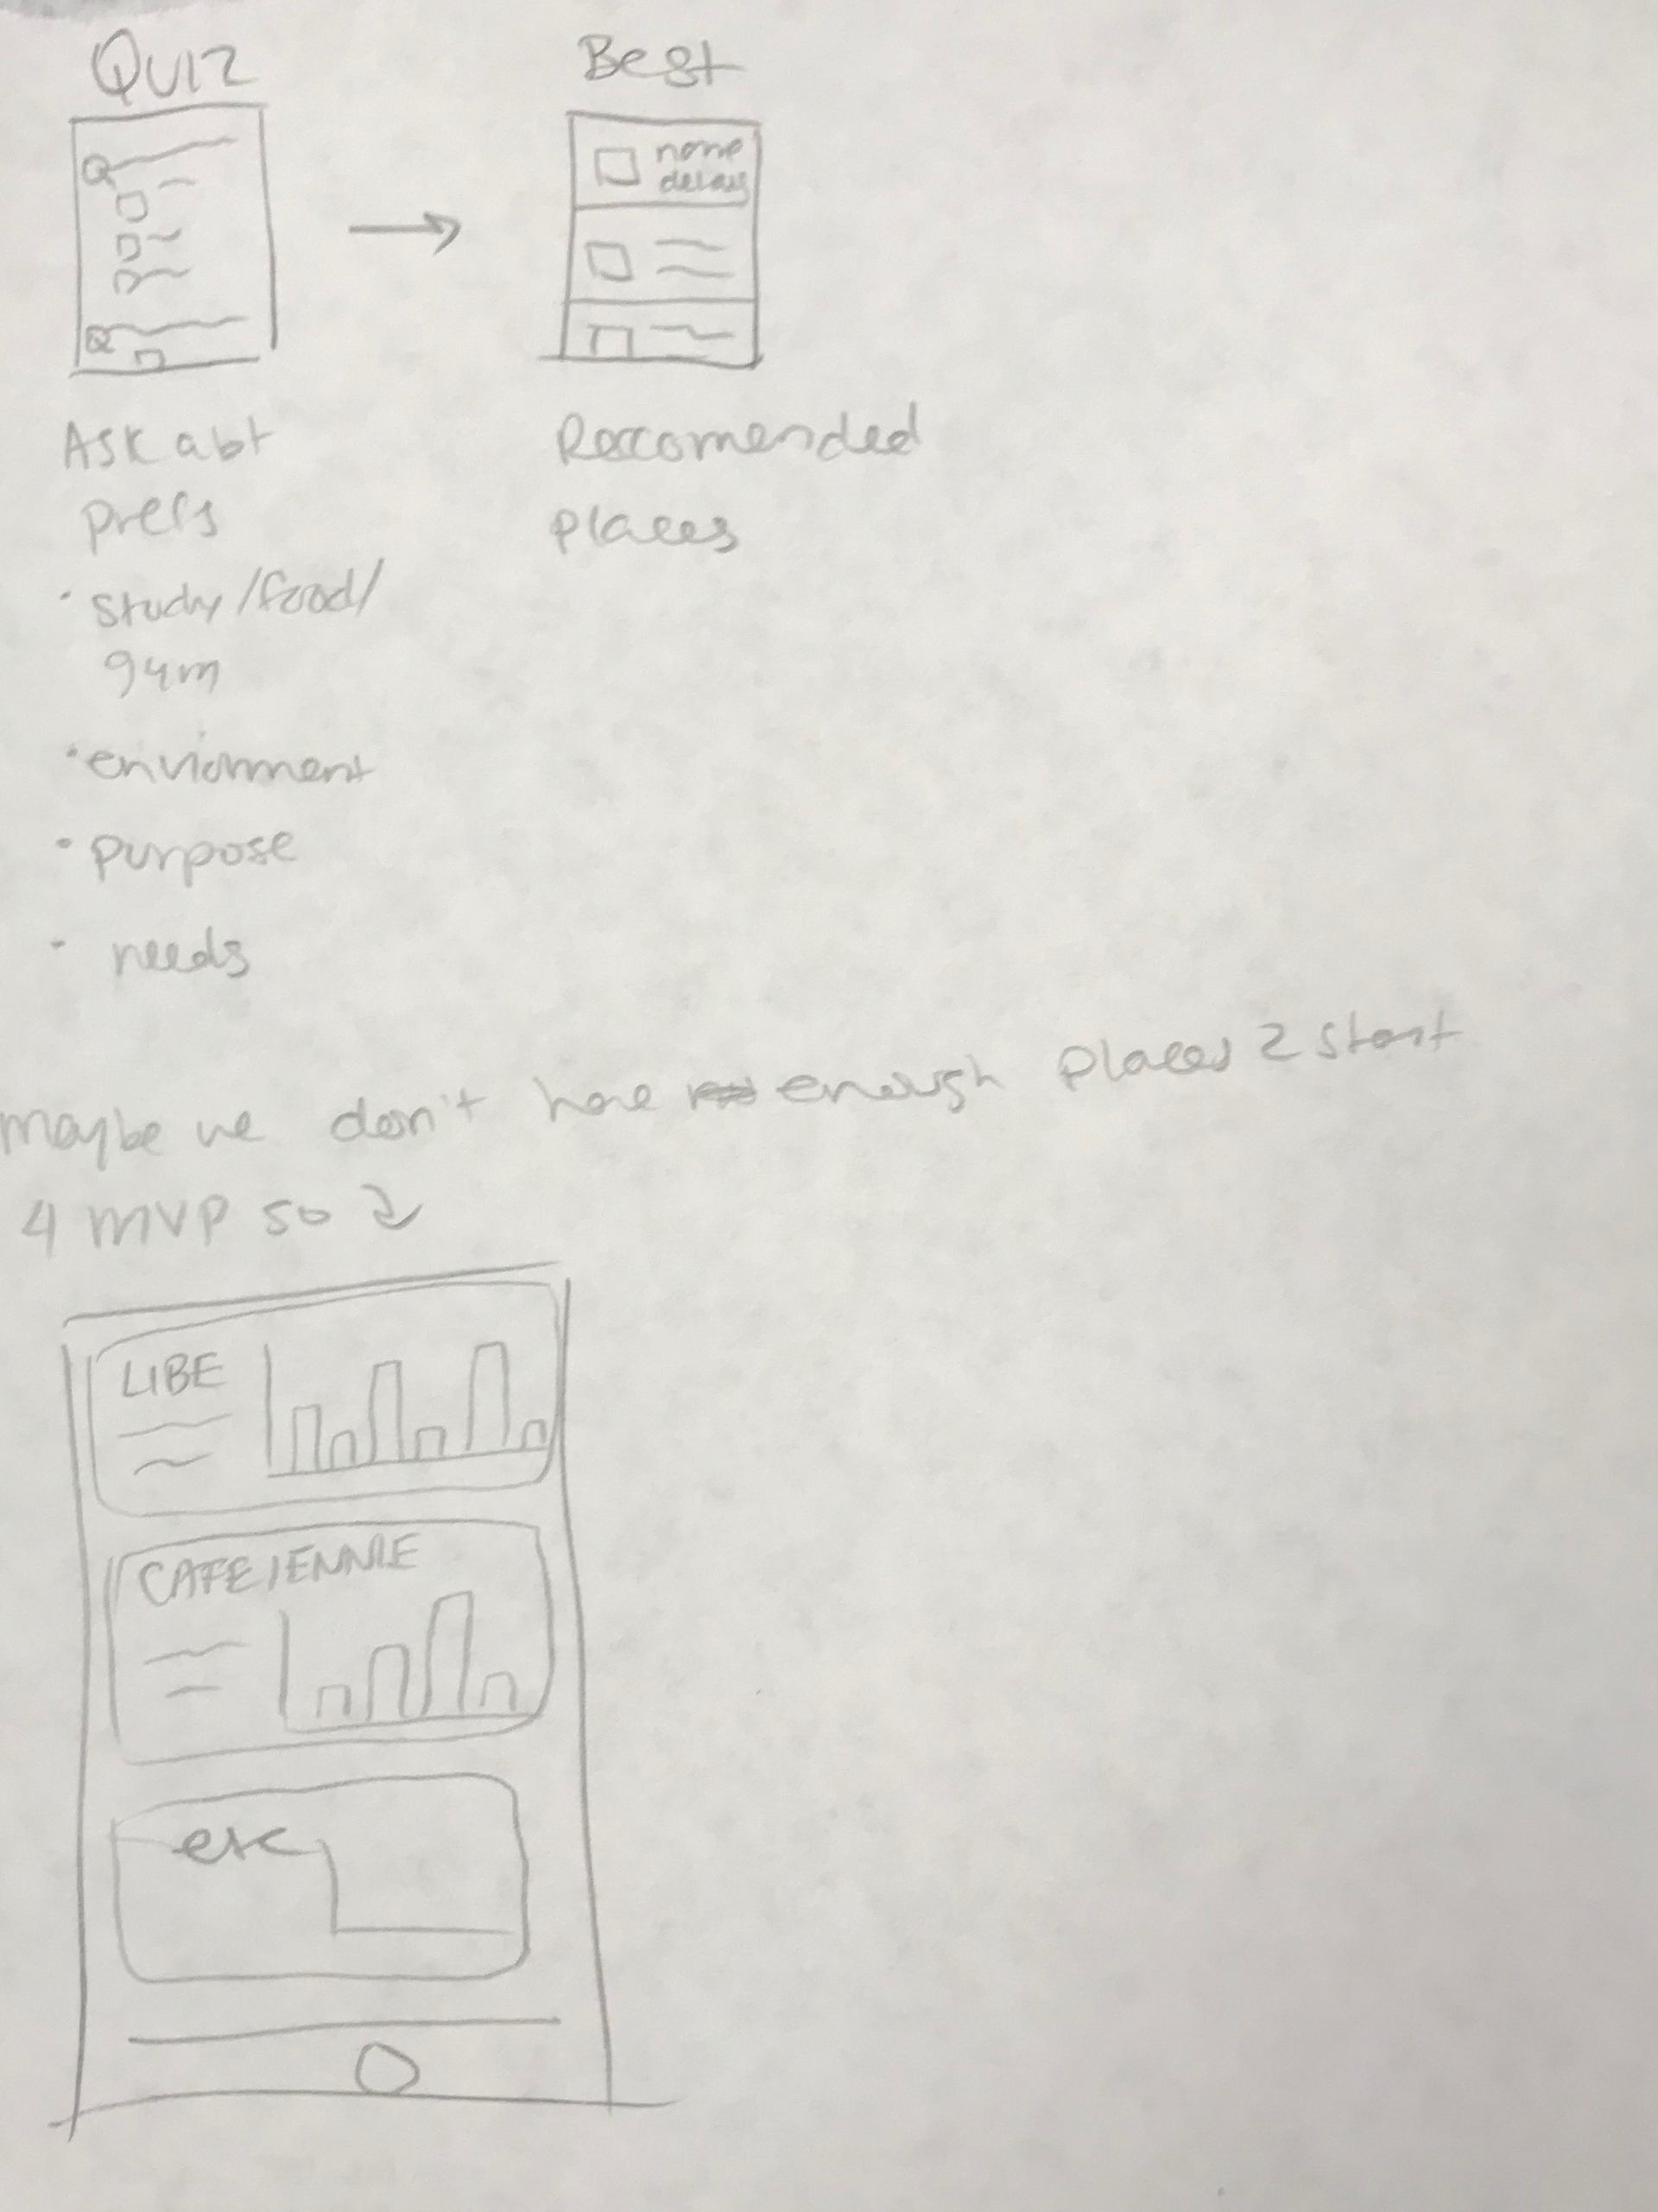 QUIZ
Best
Q
name
details
Q
Ask abt
prefs
• study/food/
gym
• enviornment
• purpose
• needs
Reccomended
places
maybe we don't have enough places 2 start
4 MVP so
LIBE
CAFE JENNIE
etc